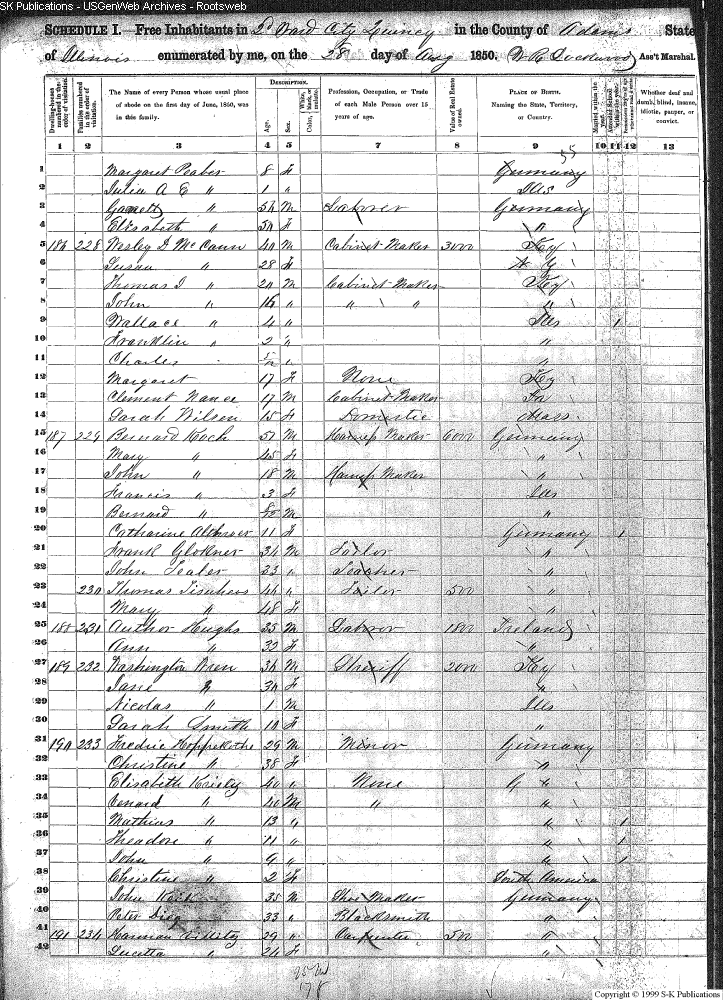 SK Publications - USGenWeb Archives - Rootsweb
SCHEDULE I. Free Inhabitants in Ward City Quincy in the County of Adams State
of Illinois enumerated by me, on the 28 day of Aug 1850. Ass't Marshal.
Dwelling-houses numbered in the order of visitation. Families numbered in the order of visitation. The Name of every Person whose usual place of abode on the first day of June, 1850, was in this family. DESCRIPTION. Age. Sex. Color, White, black, or mulatto. Profession, Occupation, or Trade of each Male Person over 15 years of age. Value of Real Estate owned. PLACE OF BIRTH. Naming the State, Territory, or Country. Married within the year. Attended School within the year. Whether deaf and dumb, blind, insane, idiotic, pauper, or convict.
1 2 3 4 5 6 7 8 9 10 11 12 13
55
1 Margaret 8 f Germany
2 Julia A E " 1 " Ills
3 54 M Laborer Germany
4 Elisabeth " 50 f "
5 186 228 Wesley D McCann 40 M Cabinet Maker 3000 Ky
6 Susan " 28 f
7 Thomas J " 20 M Cabinet Maker Ky
8 John " 16 " " " "
9 Wallace " 4 " Ills 1
10 Franklin " 2 " "
11 Charles "
12 Margaret 17 f None Ky
13 Clement Nance 17 M Cabinet Maker
14 Sarah Wilson 15 f Domestic Mass
15 187 229 Bernard Koch 51 M Harness Maker 6000 Germany
16 Mary " 45 f "
17 John " 18 M Harness Maker "
18 Francis " 3 f Ills
19 Bernard " M "
20 Catharine 11 f Germany 1
21 Frank Glokner 34 M Tailor "
22 John 33 " Teacher "
23 230 Thomas 44 " Tailor 500 "
24 Mary " 48 f "
25 188 231 Author Hughs 35 M Laborer 1800 Ireland
26 Ann " 32 f "
27 189 232 Washington Wren 34 M Sheriff 2000 Ky
28 Jane " 30 f "
29 Nicolas " 1 M Ills
30 Sarah Smith 10 f "
31 190 233 Fredric 29 M Minor Germany
32 Christine " 38 f "
33 Elisabeth 40 " None G "
34 " 40 M " "
35 Mathias " 13 " " 1
36 Theadore " 11 " " 1
37 John " 9 " " 1
38 Christine " 2 f South America
39 John 35 M Shoe Maker Germany
40 Peter 33 " Blacksmith "
41 191 234 Harman 29 " Carpenter 500 "
42 Lucetta " 24 f "
Copyright © 1999 S-K Publications